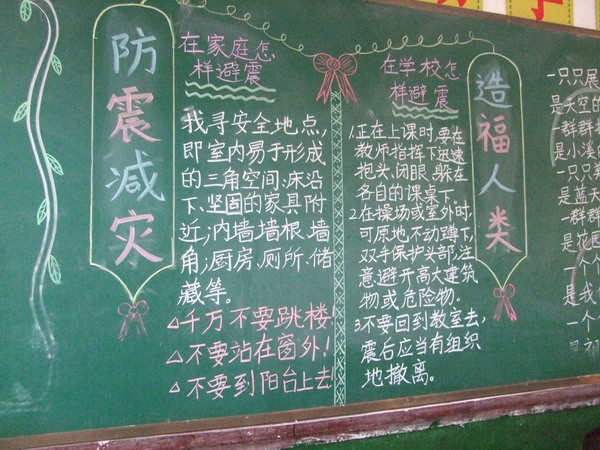 防震减灾
在家庭怎
样避震
找寻安全地点,
即室内易于形成
的三角空间:床沿
下、坚固的家具附
近;内墙墙根、墙
角;厨房、厕所、储
藏等。
△千万不要跳楼!
△不要站在窗外!
△不要到阳台上去!
在学校怎
样避震
1.正在上课时,要在
教师指挥下迅速
抱头、闭眼、躲在
各自的课桌下。
2.在操场或室外时,
可原地不动蹲下,
双手保护头部,注
意避开高大建筑
物或危险物。
3.不要回到教室去,
震后应当有组织
地撤离。
造福人类
一只只展
是天空的
一群群
是小溪
一只只
是蓝天
一群群
是花
一个个
是我
一个
是祖